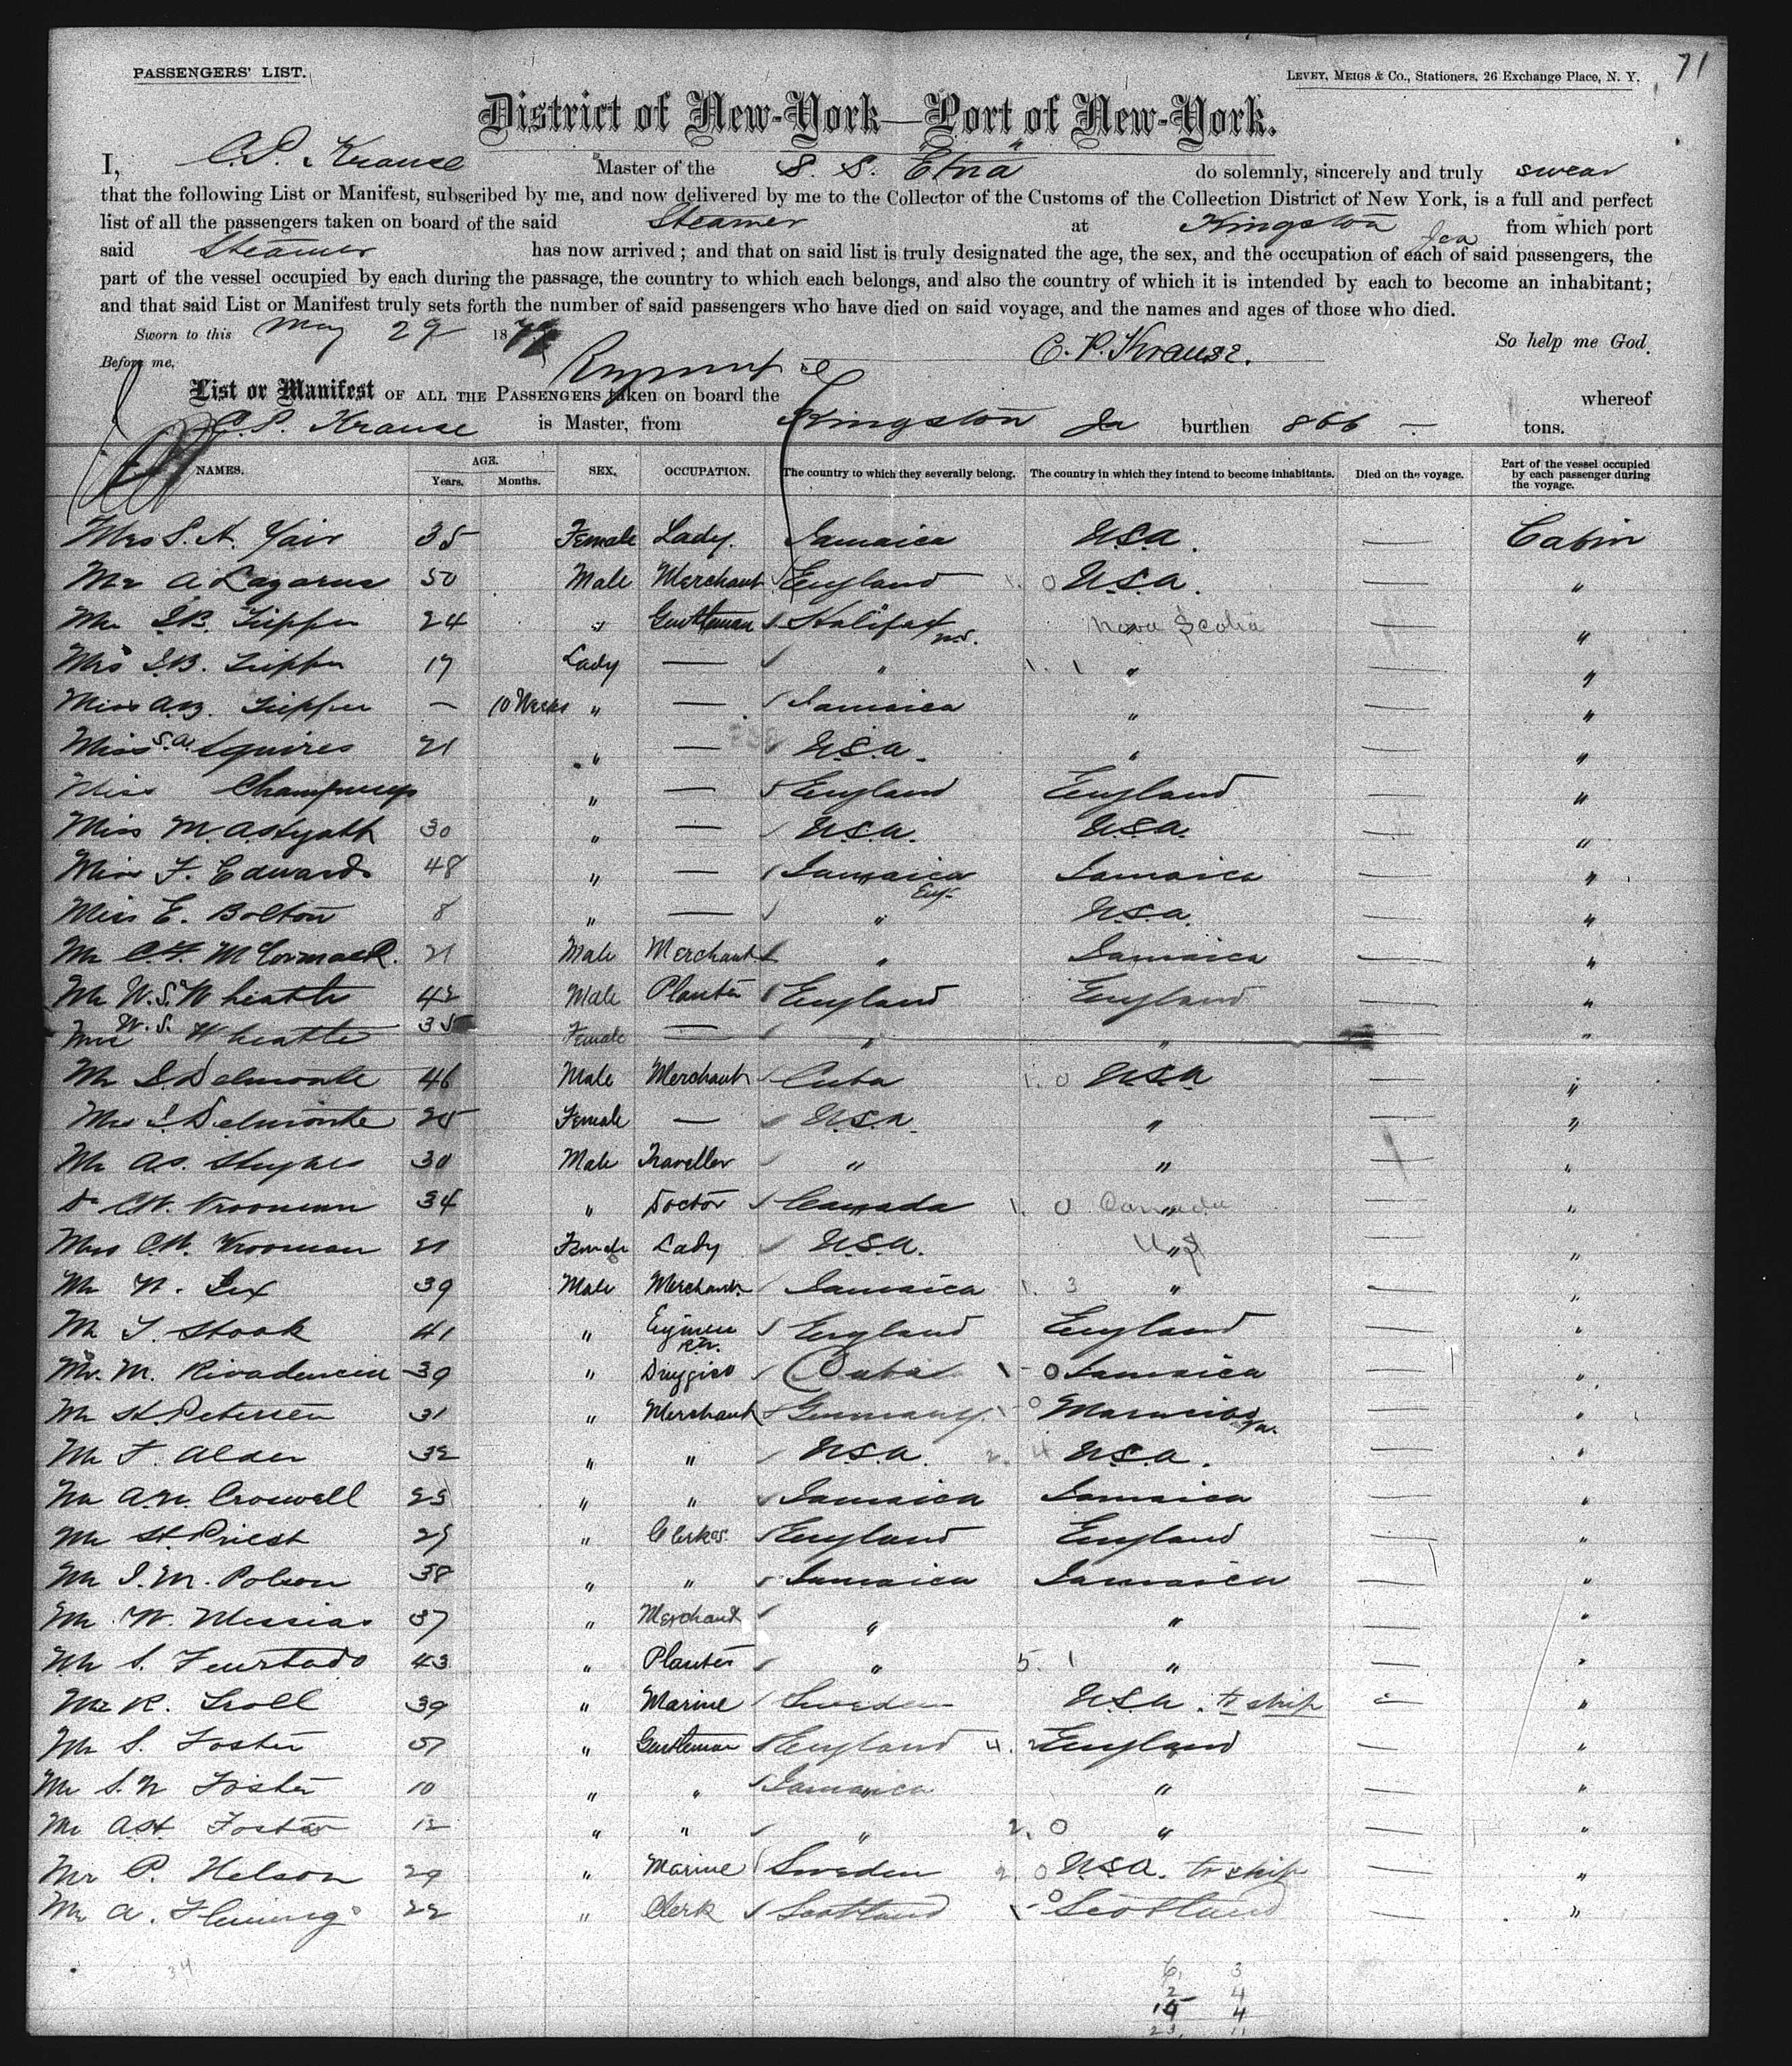 71
PASSENGERS' LIST.
LEVEY, MEIGS & CO., Stationers, 26 Exchange Place, N. Y.
District of New-York—Port of New-York.
I, C. P. Krause Master of the S. S. "Etna" do solemnly, sincerely and truly swear
that the following List or Manifest, subscribed by me, and now delivered by me to the Collector of the Customs of the Collection District of New York, is a full and perfect
list of all the passengers taken on board of the said Steamer at Kingston Jca from which port
said Steamer has now arrived; and that on said list is truly designated the age, the sex, and the occupation of each of said passengers, the
part of the vessel occupied by each during the passage, the country to which each belongs, and also the country of which it is intended by each to become an inhabitant;
and that said List or Manifest truly sets forth the number of said passengers who have died on said voyage, and the names and ages of those who died.
Sworn to this May 29 18 So help me God.
Before me, C. P. Krause.
List or Manifest OF ALL THE PASSENGERS taken on board the whereof
C. P. Krause is Master, from Kingston Ja burthen 866 — tons.
NAMES. AGE. Years. Months. SEX. OCCUPATION. The country to which they severally belong. The country in which they intend to become inhabitants. Died on the voyage. Part of the vessel occupied by each passenger during the voyage.
Mrs S. A. Yair 35 Female Lady. Jamaica U.S.A. — Cabin
Mr A Lazarus 50 Male Merchant England 1. 0 U.S.A. — "
Mr 24 " Gentleman Halifax N.S. Nova Scotia — "
Mrs 17 Lady — " 1. 1 " — "
Miss — 10 Weeks " — Jamaica " — "
Miss S.A. Squires 21 " — U.S.A. " — "
Miss " — England England — "
Miss M. A. 30 " — U.S.A. U.S.A. — "
Miss F. Edwards 48 " — Jamaica Jamaica — "
Miss E. Bolton 8 " — " Eng. U.S.A. — "
Mr C. F. McCormack. 21 Male Merchant " Jamaica — "
Mr W. S. Wheatle 42 Male Planter England England — "
Mrs W. S. Wheatle 35 Female — " " — "
Mr Delmonte 46 Male Merchant Cuba 1. 0 U.S.A — "
Mrs Delmonte 25 Female — U.S.A. " — "
Mr Hughes 30 Male Traveller " " — "
Dr C.W. Vrooman 34 " Doctor Canada 1. 0 Canada — "
Mrs C.W. Vrooman 21 Female Lady U.S.A. U S — "
Mr W. 39 Male Merchant Jamaica 1. 3 " — "
Mr 41 " England England — "
Mr. M. 39 " Druggist Cuba 1 - 0 Jamaica — "
Mr H. Petersen 31 " Merchant Germany — "
Mr F. Alder 32 " " U.S.A. 2. 4 U.S.A. — "
Mr Croswell " " Jamaica Jamaica — "
Mr H. Priest " Clerk England England — "
Mr J. M. Polson 38 " " Jamaica Jamaica — "
Mr W. Messias 37 " Merchant " " — "
Mr S. Feurtado 43 " Planter " 5. 1 " — "
Mr R. 39 " Marine Sweden U.S.A. to ship — "
Mr S. Foster " Gentleman England 4. England — "
Mr S. N Foster 10 " " Jamaica " — "
Mr A.H. Foster 12 " " " 2. 0 " — "
Mr P. Nelson 29 " Marine Sweden 2. 0 U.S.A. to ship — "
Mr A. Fleming 22 " Clerk Scotland 1 - 0 Scotland — "
34
6. 3
2 4
15 4
23. 11